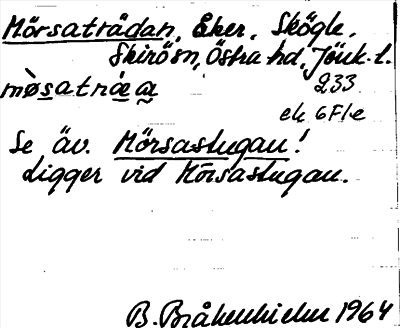 Mörsaträdan, Åker, Skögle,
Skirö sn, Östra hd, Jönk. l.
mòsatræa 233
ek 6F1e
Se äv. Mörsastugan!
Ligger vid Mörsastugan.
B. Bråkenhielm 1964